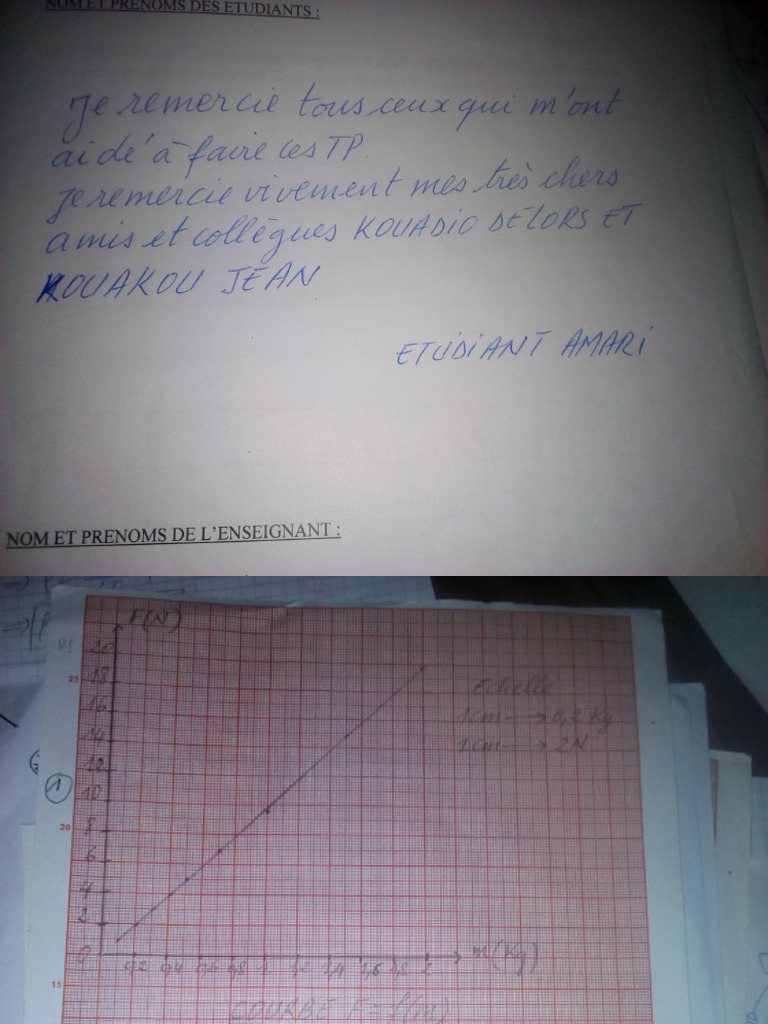 NOM ET PRENOMS DES ETUDIANTS :
Je remercie tous ceux qui m'ont
aidé à faire ces TP.
Je remercie vivement mes très chers
amis et collègues KOUADIO DELORS ET
KOUAKOU JEAN
ETUDIANT AMARI
NOM ET PRENOMS DE L'ENSEIGNANT :
F(N)
20
25
18
Echelle
16
1cm → 0,2 Kg
14
1cm → 2N
12
1
10
20
8
6
4
2
0
0,2 0,4 0,6 0,8 1 1,2 1,4 1,6 1,8 2 m(Kg)
15
COURBE F = f(m)